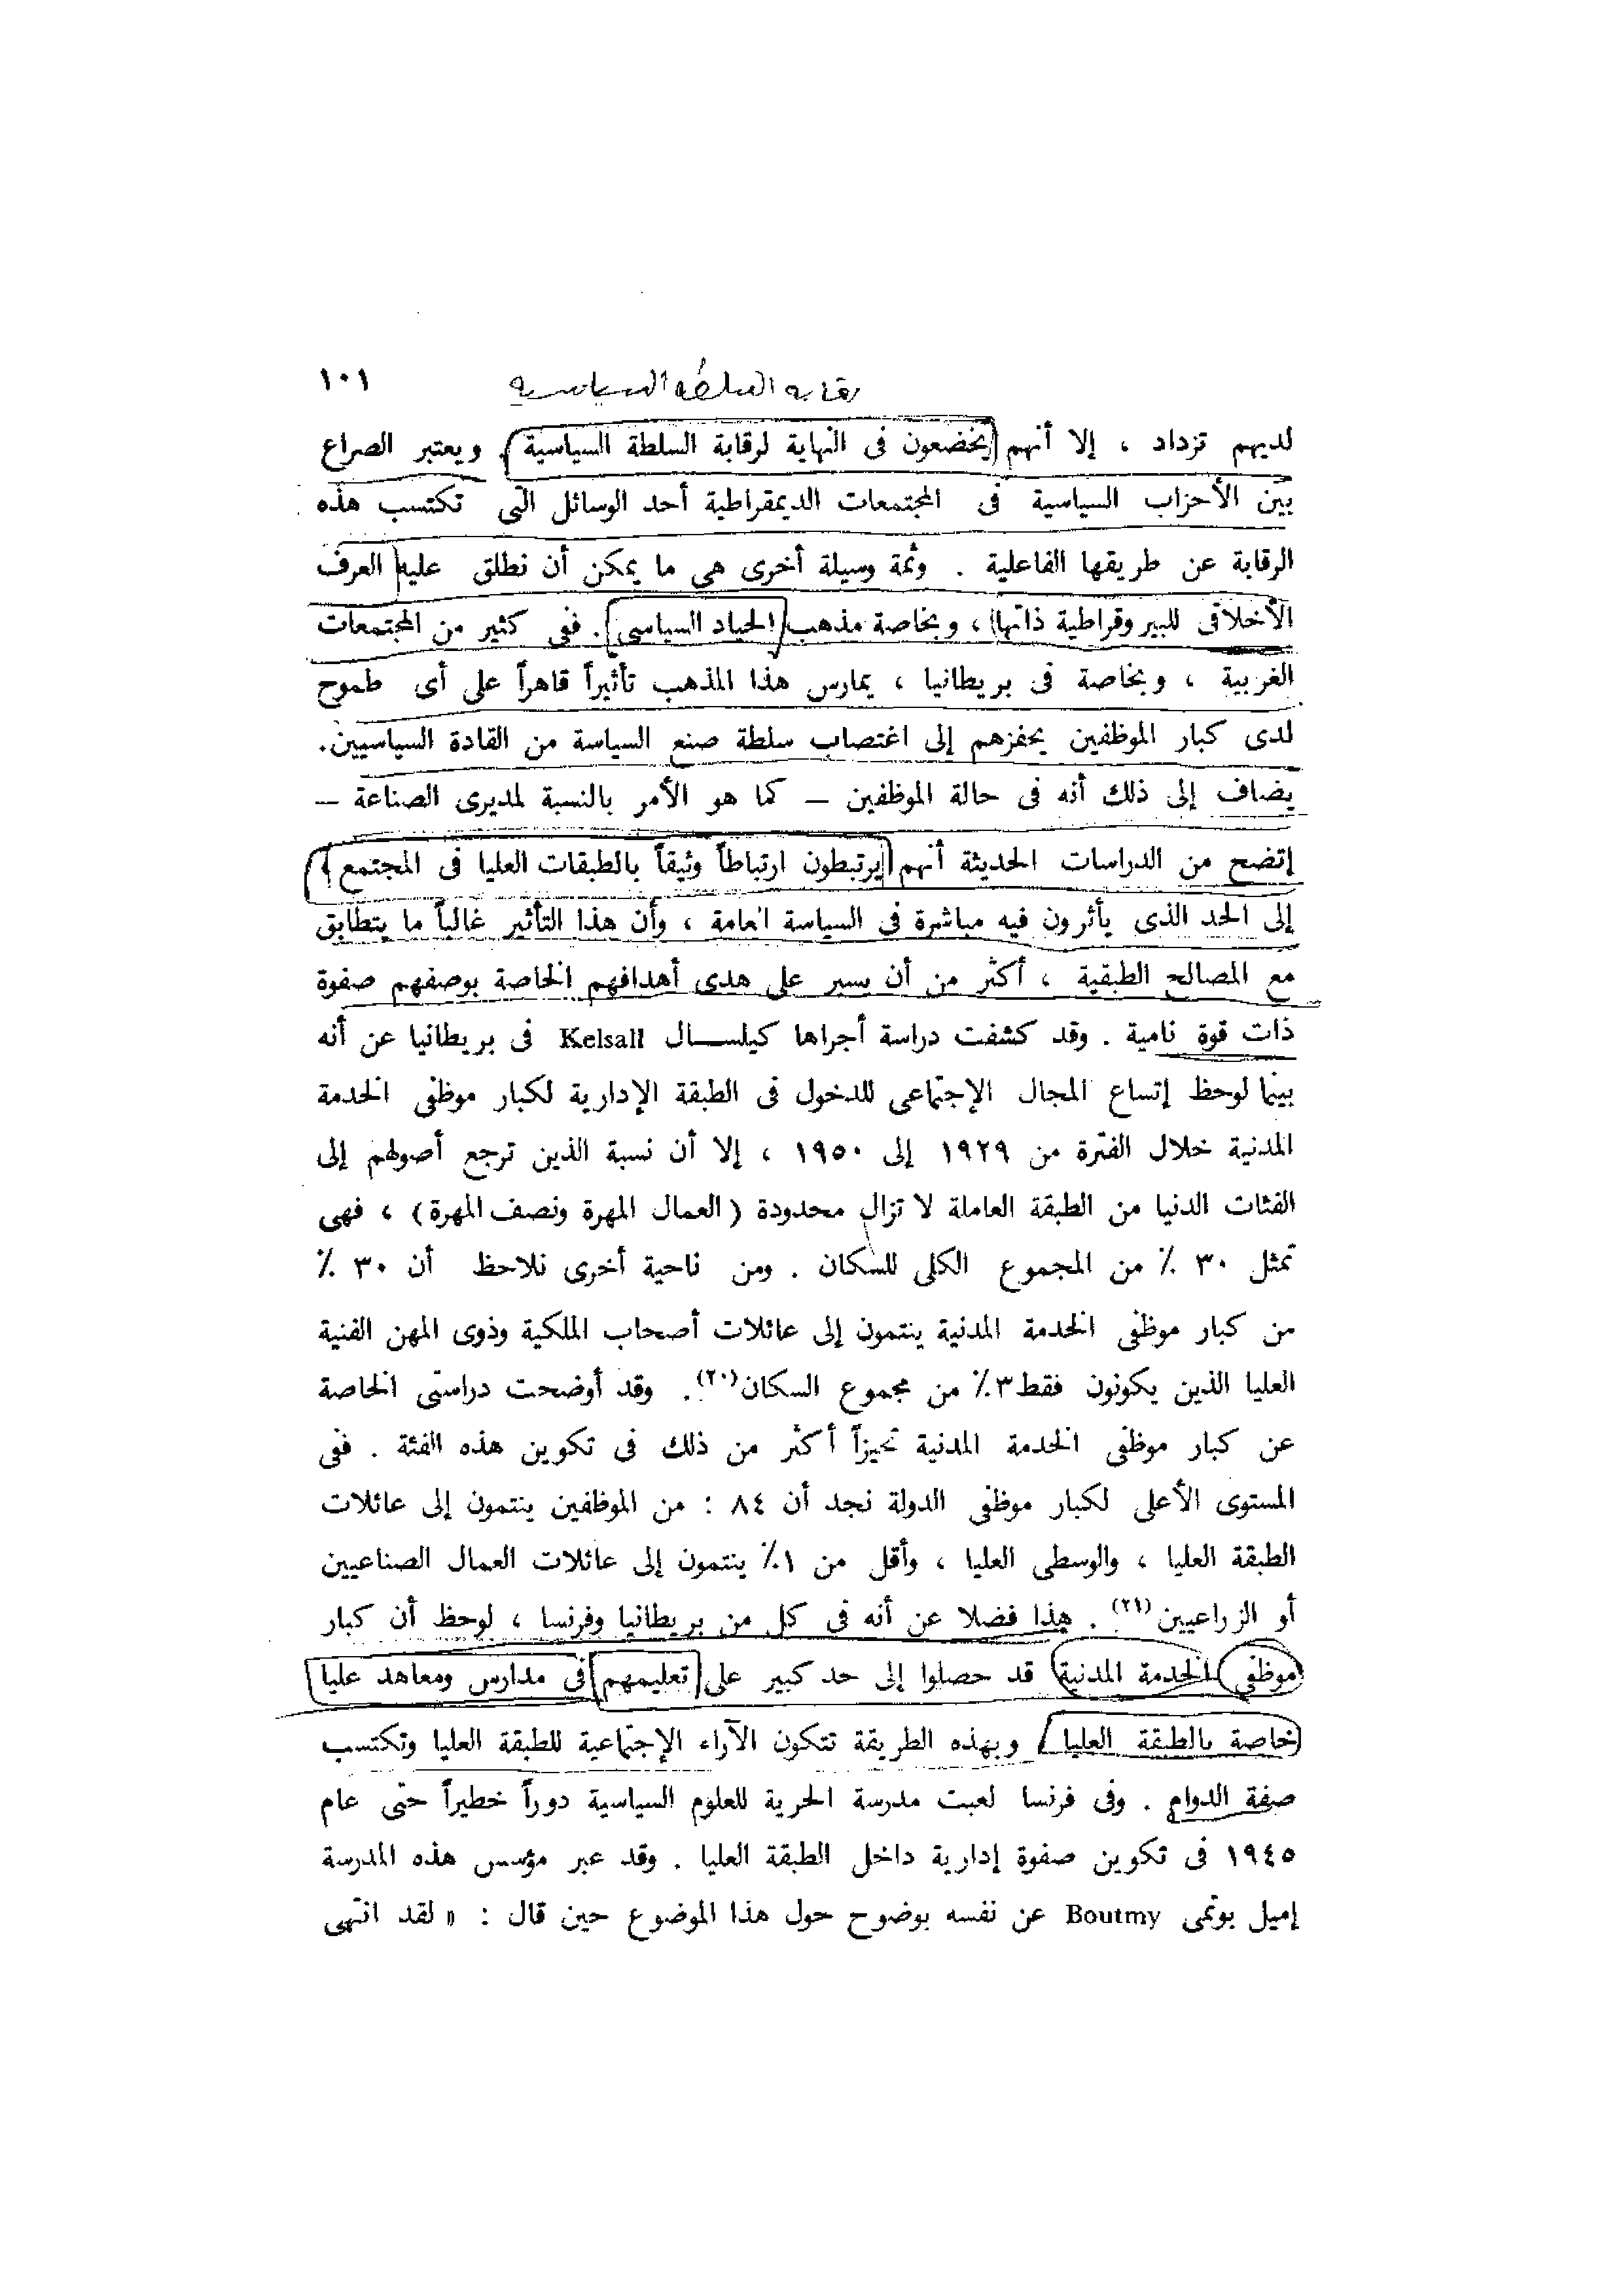 رقابة السلطة السياسية ١٠١
لديهم تزداد ، إلا أنهم يخضعون فى النهاية لرقابة السلطة السياسية . ويعتبر الصراع
بين الأحزاب السياسية فى المجتمعات الديمقراطية أحد الوسائل التى تكتسب هذه
الرقابة عن طريقها الفاعلية . وثمة وسيلة أخرى هى ما يمكن أن نطلق عليه العرف
الأخلاقى للبيروقراطية ذاتها ، وبخاصة مذهب الحياد السياسى . ففى كثير من المجتمعات
الغربية ، وبخاصة فى بريطانيا ، يمارس هذا المذهب تأثيراً قاهراً على أى طموح
لدى كبار الموظفين يحفزهم إلى اغتصاب سلطة صنع السياسة من القادة السياسيين.
يضاف إلى ذلك أنه فى حالة الموظفين – كما هو الأمر بالنسبة لمديرى الصناعة –
إتضح من الدراسات الحديثة أنهم يرتبطون ارتباطاً وثيقاً بالطبقات العليا فى المجتمع ،
إلى الحد الذى يأثرون فيه مباشرة فى السياسة العامة ، وأن هذا التأثير غالباً ما يتطابق
مع المصالح الطبقية ، أكثر من أن يسير على هدى أهدافهم الخاصة بوصفهم صفوة
ذات قوة نامية . وقد كشفت دراسة أجراها كيلســال Kelsall فى بريطانيا عن أنه
بينما لوحظ إتساع المجال الإجتماعى للدخول فى الطبقة الإدارية لكبار موظفى الخدمة
المدنية خلال الفترة من ١٩٢٩ إلى ١٩٥٠ ، إلا أن نسبة الذين ترجع أصولهم إلى
الفئات الدنيا من الطبقة العاملة لا تزال محدودة (العمال المهرة ونصف المهرة) ، فهى
تمثل ٣٠ ٪ من المجموع الكلى للسكان . ومن ناحية أخرى نلاحظ أن ٣٠ ٪
من كبار موظفى الخدمة المدنية ينتمون إلى عائلات أصحاب الملكية وذوى المهن الفنية
العليا الذين يكونون فقط ٣٪ من مجموع السكان(٢٠). وقد أوضحت دراستى الخاصة
عن كبار موظفى الخدمة المدنية تحيزاً أكثر من ذلك فى تكوين هذه الفئة . ففى
المستوى الأعلى لكبار موظفى الدولة نجد أن ٨٤ : من الموظفين ينتمون إلى عائلات
الطبقة العليا ، والوسطى العليا ، وأقل من ١٪ ينتمون إلى عائلات العمال الصناعيين
أو الزراعيين (٢١) . هذا فضلا عن أنه فى كل من بريطانيا وفرنسا ، لوحظ أن كبار
موظفى الخدمة المدنية قد حصلوا إلى حد كبير على تعليمهم فى مدارس ومعاهد عليا
خاصة بالطبقة العليا ، وبهذه الطريقة تتكون الآراء الإجتماعية للطبقة العليا وتكتسب
صفة الدوام . وفى فرنسا لعبت مدرسة الحرية للعلوم السياسية دوراً خطيراً حتى عام
١٩٤٥ فى تكوين صفوة إدارية داخل الطبقة العليا . وقد عبر مؤسس هذه المدرسة
إميل بوتمى Boutmy عن نفسه بوضوح حول هذا الموضوع حين قال : « لقد انتهى